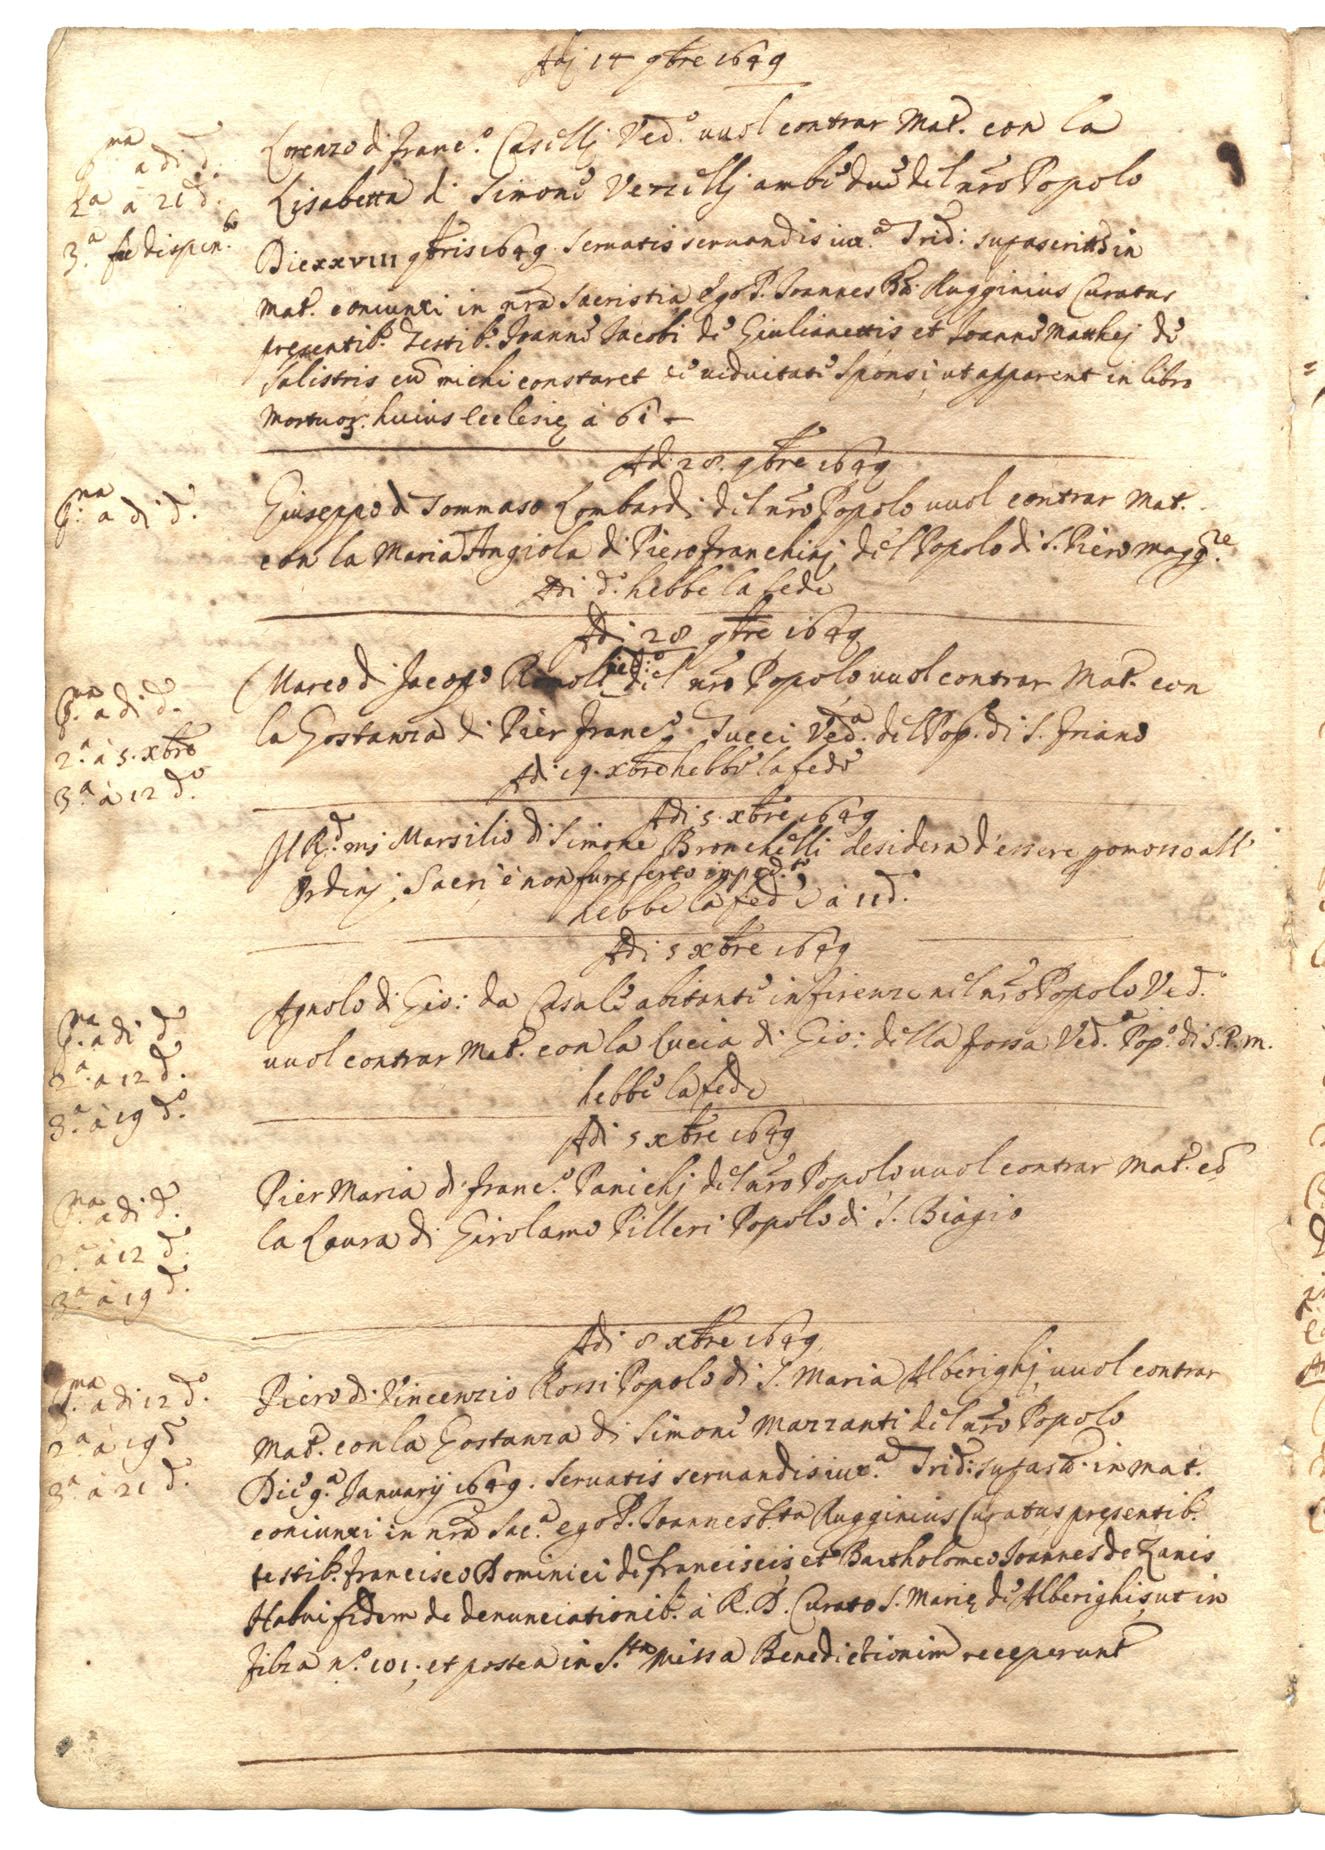 Adj 14 9bre 1649
pma a di do.
2a a 21 do.
3.a fu dispento
Lorenzo di Franc.o Casellj Ved.o vuol contrar Mat.o con la
Lisabetta di Simone Verzellj ambi due del nro Popolo
Die xxviii 9bris 1649 seruatis seruandis iux.a Trid: supascritto in
Mat.o coniunxi in nra sacristia ego P. Joannes Bta Rugginius Curatus
presentib. Testib. Joanne Jacobi de Giulianettis et Joanne Matthej de
Salistris cu michi constaret de viduitate Sponsi, ut apparent in libro
Mortuor. huius Ecclesie a 61
Adi 28. 9bre 1649
pma a di do.
Giuseppo di Tommaso Lombardi del nro Popolo vuol contrar Mat.o
con la Maria Angiola di Piero Franchinj del Popolo di S. Piero magg.re
Adi do. hebbe la fede
Adi 28 9bre 1649
pma a di do.
2.a a 5. xbre
3.a a 12 do.
Marco di Jacopo Ved.o del nro Popolo vuol contrar Mat.o con
la Gostanza di Pier Franc.o Tucci Ved.a del Pop.o di S. Friano
Adi 19. xbre hebbe la fede
Adi 5. xbre 1649
Il R.do mj Marsilio di Simone Bronchelli desidera d'essere pomosso all'
Ordinj Sacri e non fu referto imped.to
hebbe la fede a 11 do.
Adi 5 xbre 1649
pma a di do
2.a a 12 do.
3.a a 19 do.
Agnolo di Gio: da Casale abitante in firenze nel nro Popolo Ved.o
vuol contrar Mat.o con la Lucia di Gio: della fossa Ved.a Pop.o di S. P. m.
hebbe la fede
Adi 5 xbre 1649
pma a di do.
2.a a 12 do.
3.a a 19 do.
Pier Maria di Franc.o Panichj del nro Popolo vuol contrar Mat.o co
la Laura di Girolamo Pilleri Popolo di S. Biagio
Adi 8 xbre 1649
pma a di 12 do.
2.a a 19 do
3.a a 21 do.
Piero di Vincenzio Rossi Popolo di S. Maria Alberighj vuol contrar
Mat.o con la Gostanza di Simone Mazzanti del nro Popolo
Die 9.a Januarij 1649. seruatis seruandis iux.a Trid: supasto. in mat.o
coniunxi in nra Sac.a ego P. Joannes Bta Rugginius Curatus presentib.
testib. Francisco Dominici de franciscis et Bartholomeo Joannes de Zanis
Habui fidem de denunciationib. a R. D. Curato S. Marie de Alberighis, ut in
filza n.o 101. et postea in S.ta Missa Benedictionem receperunt